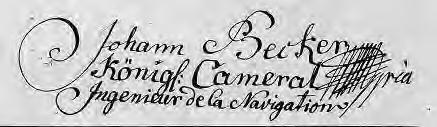 Johann Becker
Königl: Cameral
Ingenieur de la Navigation